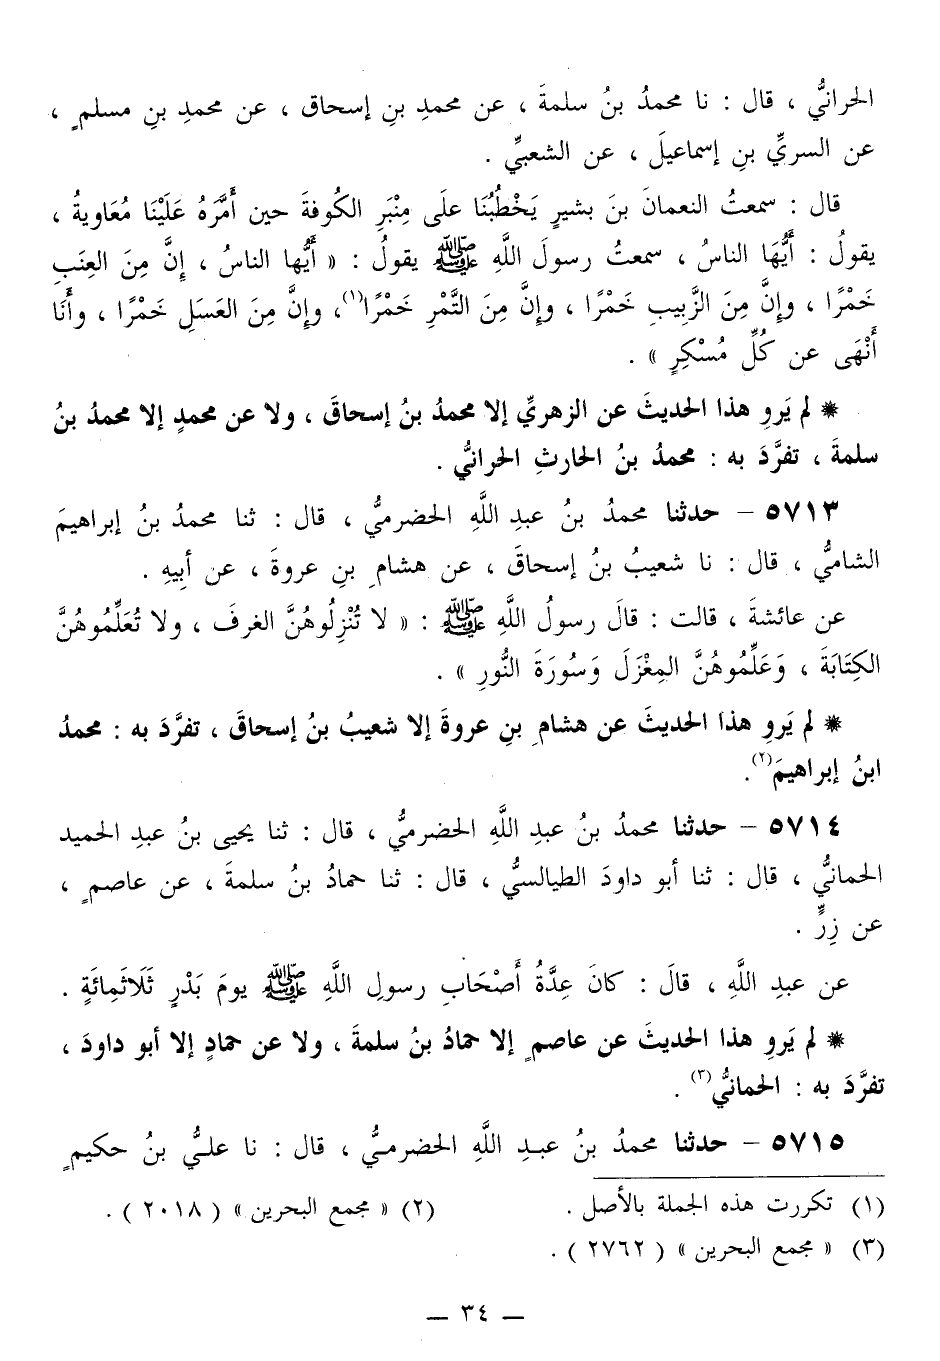 الحرانيُّ ، قال : نا محمدُ بنُ سلمةَ ، عن محمدِ بنِ إسحاق ، عن محمدِ بنِ مسلمٍ ،
عن السريِّ بنِ إسماعيلَ ، عن الشعبيِّ .
قال : سمعتُ النعمانَ بنَ بشيرٍ يَخْطُبُنَا علَى مِنْبَرِ الكُوفةَ حين أَمَّرَهُ عَلَيْنَا مُعَاويةُ ،
يقولُ : أَيُّهَا الناسُ ، سمعتُ رسولَ اللَّهِ ﷺ يقولُ : « أَيُّها الناسُ ، إِنَّ مِنَ العِنَبِ
خَمْرًا ، وإِنَّ مِنَ الزَّبِيبِ خَمْرًا ، وإِنَّ مِنَ التَّمْرِ خَمْرًا(١)، وإِنَّ مِنَ العَسَلِ خَمْرًا ، وأَنَا
أَنْهَى عن كُلِّ مُسْكِرٍ » .
* لم يَروِ هذا الحديثَ عن الزهريِّ إلا محمدُ بنُ إسحاقَ ، ولا عن محمدٍ إلا محمدُ بنُ
سلمةَ ، تفرَّدَ به : محمدُ بنُ الحارثِ الحرانيُّ .
٥٧١٣ - حدثنا محمدُ بنُ عبدِ اللَّهِ الحضرميُّ ، قال : ثنا محمدُ بنُ إبراهيمَ
الشاميُّ ، قال : نا شعيبُ بنُ إسحاقَ ، عن هشامِ بنِ عروةَ ، عن أبِيهِ .
عن عائشةَ ، قالت : قالَ رسولُ اللَّهِ ﷺ : « لا تُنْزِلُوهُنَّ الغرفَ ، ولا تُعَلِّمُوهُنَّ
الكِتَابَةَ ، وَعَلِّمُوهُنَّ المِغْزَلَ وَسُورَةَ النُّورِ » .
* لم يَروِ هذا الحديثَ عن هشامِ بنِ عروةَ إلا شعيبُ بنُ إسحاقَ ، تفرَّدَ به : محمدُ
ابنُ إبراهيمَ(٢).
٥٧١٤ - حدثنا محمدُ بنُ عبدِ اللَّهِ الحضرميُّ ، قال : ثنا يحيى بنُ عبدِ الحميد
الحمانيُّ ، قال : ثنا أبو داودَ الطيالسيُّ ، قال : ثنا حمادُ بنُ سلمةَ ، عن عاصمٍ ،
عن زِرٍّ .
عن عبدِ اللَّهِ ، قالَ : كانَ عِدَّةُ أَصْحَابِ رسولِ اللَّهِ ﷺ يومَ بَدْرٍ ثَلَاثَمِائَةٍ .
* لم يَروِ هذا الحديثَ عن عاصمٍ إلا حمادُ بنُ سلمةَ ، ولا عن حمادٍ إلا أبو داودَ ،
تفرَّدَ به : الحمانيُّ(٣) .
٥٧١٥ - حدثنا محمدُ بنُ عبدِ اللَّهِ الحضرميُّ ، قال : نا عليُّ بنُ حكيمٍ
(١) تكررت هذه الجملة بالأصل . (٢) « مجمع البحرين » ( ٢٠١٨ ) .
(٣) « مجمع البحرين » ( ٢٧٦٢ ) .
— ٣٤ —